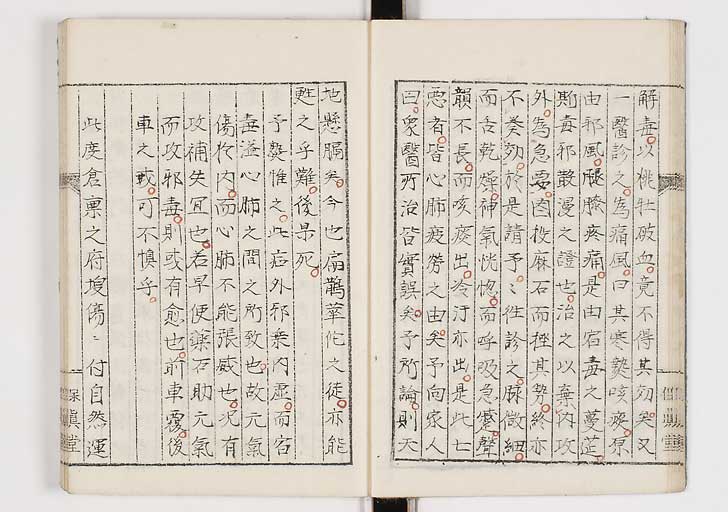 解毒以桃牡破血竟不得其効矣又
一醫診之為痛風曰其寒熱咳痰原
由邪風腿膝疼痛是由宿毒之蔓茫
斯毒邪散漫之證也治之以棄內攻
外為急要因投麻石而挫其勢終亦
不奏効於是請予〻往診之脉微細
而舌乾燥神氣恍惚而呼吸急蹙聲
韻不長而咳痰出冷汗亦出是此七
悪者皆心肺疲勞之由矣予向家人
曰衆醫所治皆實誤矣予所論則天
地懸隔矣今也扁鵲華佗之徒亦能
甦之乎難後果死
予熟惟之此症外邪乘內虛而宿
毒溢心肺之間之所致也故元氣
傷於內而心肺不能張盛也况有
攻補失宜也若早使藥石助元氣
而攻邪毒則或有愈也前車覆後
車之戒可不慎乎
此度倉稟之府
傷〻付自然運
保真堂